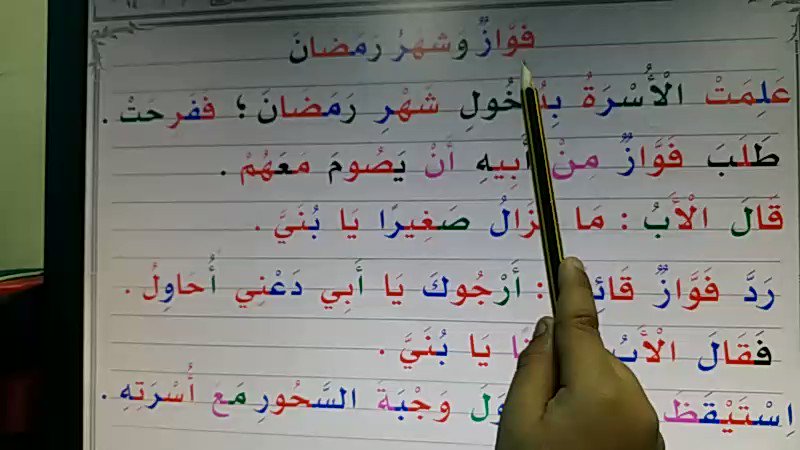 فَوَّازٌ وَشَهْرُ رَمَضَانَ
عَلِمَتْ الْأُسْرَةُ بِدُخُولِ شَهْرِ رَمَضَانَ ؛ فَفَرِحَتْ .
طَلَبَ فَوَّازٌ مِنْ أَبِيهِ أَنْ يَصُومَ مَعَهُمْ .
قَالَ الْأَبُ : مَا صَغِيرًا يَا بُنَيَّ .
رَدَّ فَوَّازٌ : أَرْجُوكَ يَا أَبِي دَعْنِي أُحَاوِلُ .
فَقَالَ الْأَبُ يَا بُنَيَّ .
اِسْتَيْقَظَ وَجْبَةَ السَّحُورِ مَعَ أُسْرَتِهِ .